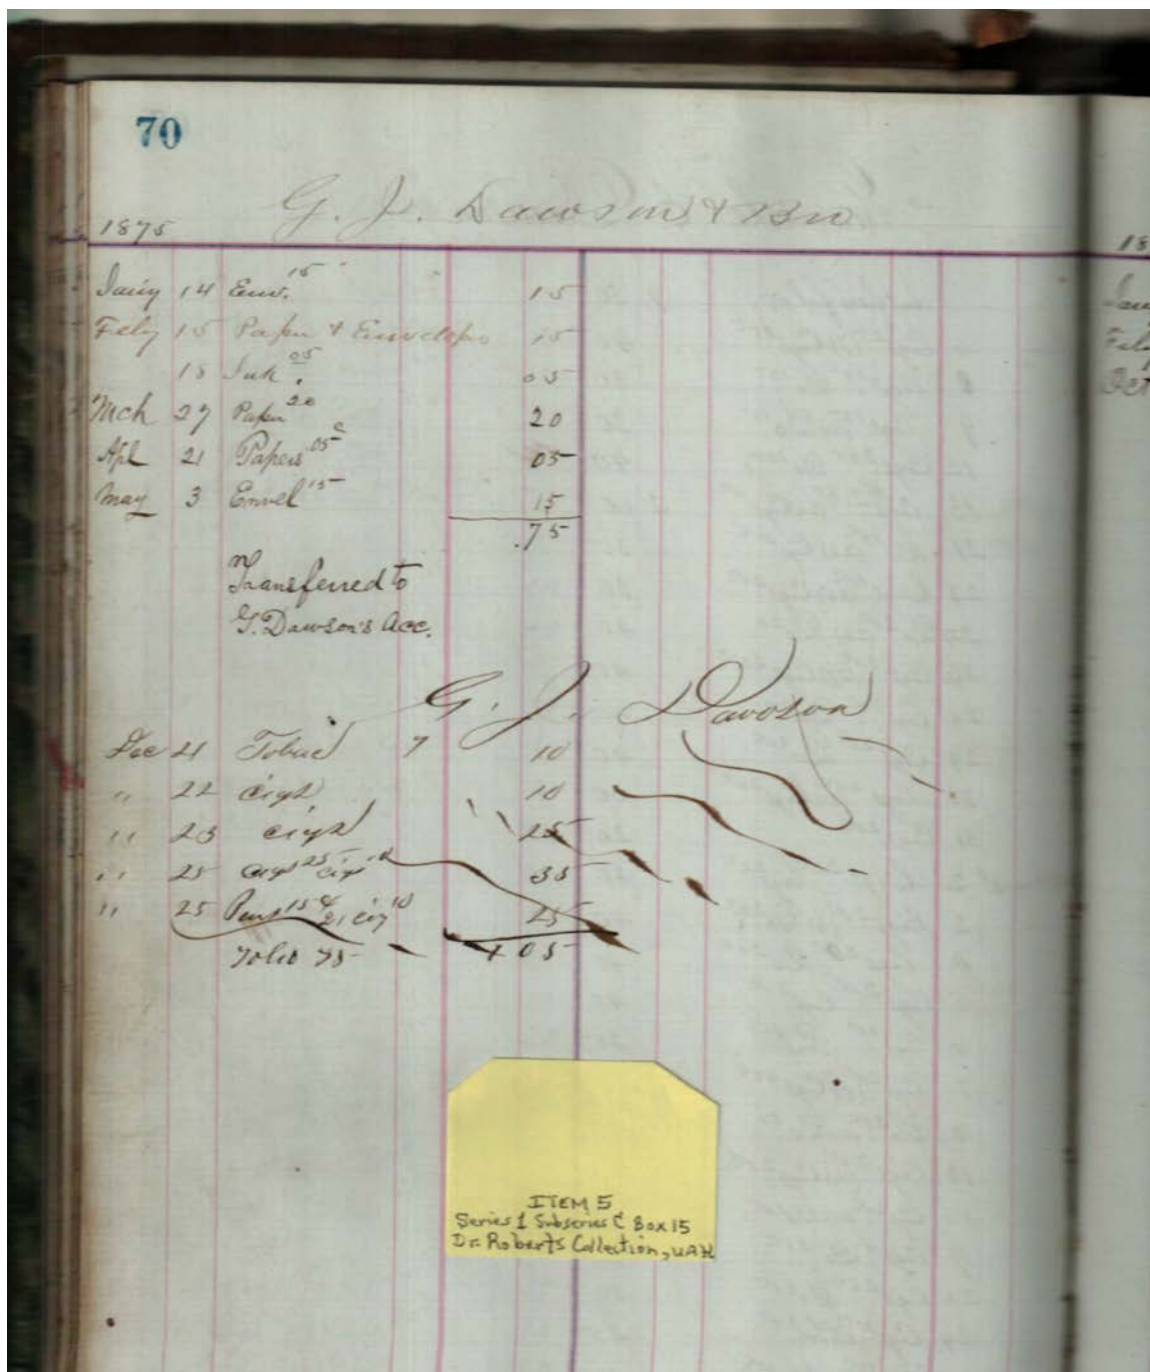 70
G. J. Dawson & Bro
1875
18
Jany 14 Env. 15 15
Jan
Feby 15 Paper & Envelopes 15
Feb
18 Ink 05 05
Oct
Mch 27 Paper 20 20
Apl 21 Papers 05c 05
May 3 Envel 15 15
.75
Transferred to
G. Dawson's Acc.
G. J. Dawson
Dec 21 10
" 22 cigs 10
" 23 cigs 25
" 25 cigs 25 cigs 10 35
" 25 15 & cig 10 25
75 05
ITEM 5
Series 1 Subseries C Box 15
Dr. Roberts Collection, UAH